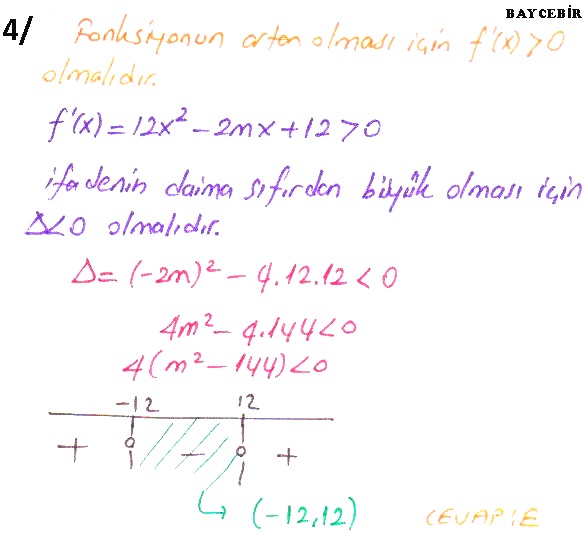 BAY CEBİR
4/ Fonksiyonun artan olması için f'(x)>0
olmalıdır.
f'(x)=12x²-2mx+12>0
ifadenin daima sıfırdan büyük olması için
Δ<0 olmalıdır.
Δ=(-2m)²-4.12.12<0
4m²-4.144<0
4(m²-144)<0
-12 12
+ - +
(-12,12) CEVAP:E